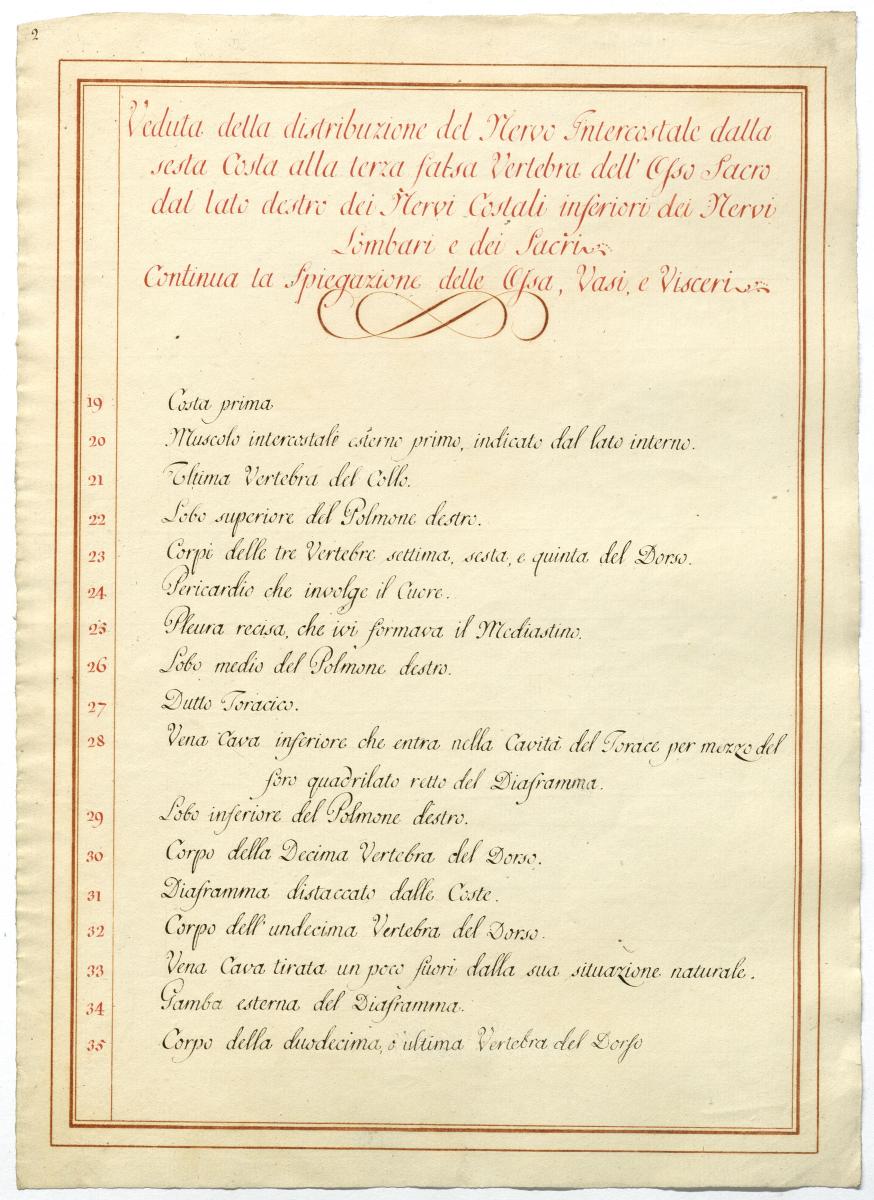 2
Veduta della distribuzione del Nervo Intercostale dalla
sesta Costa alla terza falsa Vertebra dell' Osso Sacro
dal lato destro dei Nervi Costali inferiori dei Nervi
Lombari e dei Sacri
Continua la Spiegazione delle Ossa, Vasi, e Visceri
19 Costa prima
20 Muscolo intercostale esterno primo, indicato dal lato interno.
21 Ultima Vertebra del Collo.
22 Lobo superiore del Polmone destro.
23 Corpi delle tre Vertebre settima, sesta, e quinta del Dorso.
24 Pericardio che involge il Cuore.
25 Pleura recisa, che ivi formava il Mediastino.
26 Lobo medio del Polmone destro.
27 Dutto Toracico.
28 Vena Cava inferiore che entra nella Cavità del Torace per mezzo del
foro quadrilato retto del Diaframma.
29 Lobo inferiore del Polmone destro.
30 Corpo della Decima Vertebra del Dorso.
31 Diaframma distaccato dalle Coste.
32 Corpo dell' undecima Vertebra del Dorso.
33 Vena Cava tirata un poco fuori dalla sua situazione naturale.
34 Gamba esterna del Diaframma.
35 Corpo della duodecima, o' ultima Vertebra del Dorso